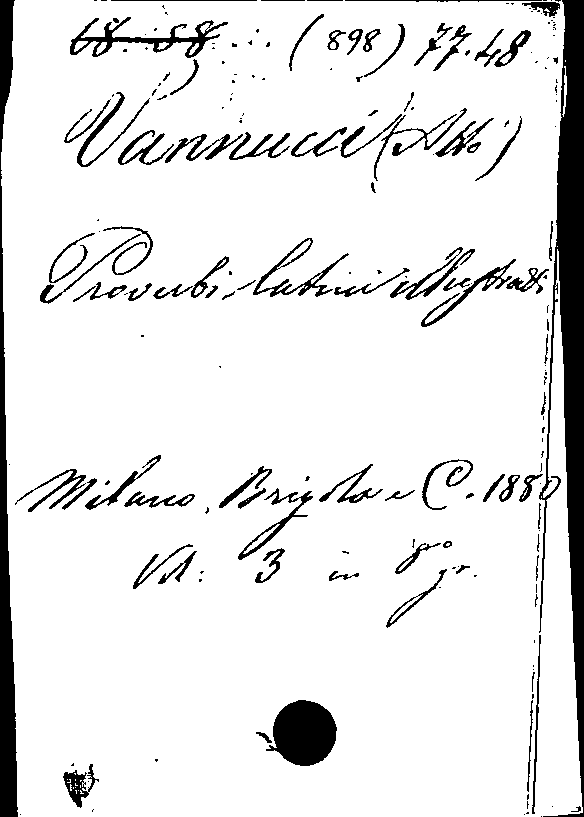 68. 58 (898) 77.48
Vannucci (Atto)
Proverbi latini illustrati
Milano, Brigola e C. 1880
Vol: 3 in 8º gr.